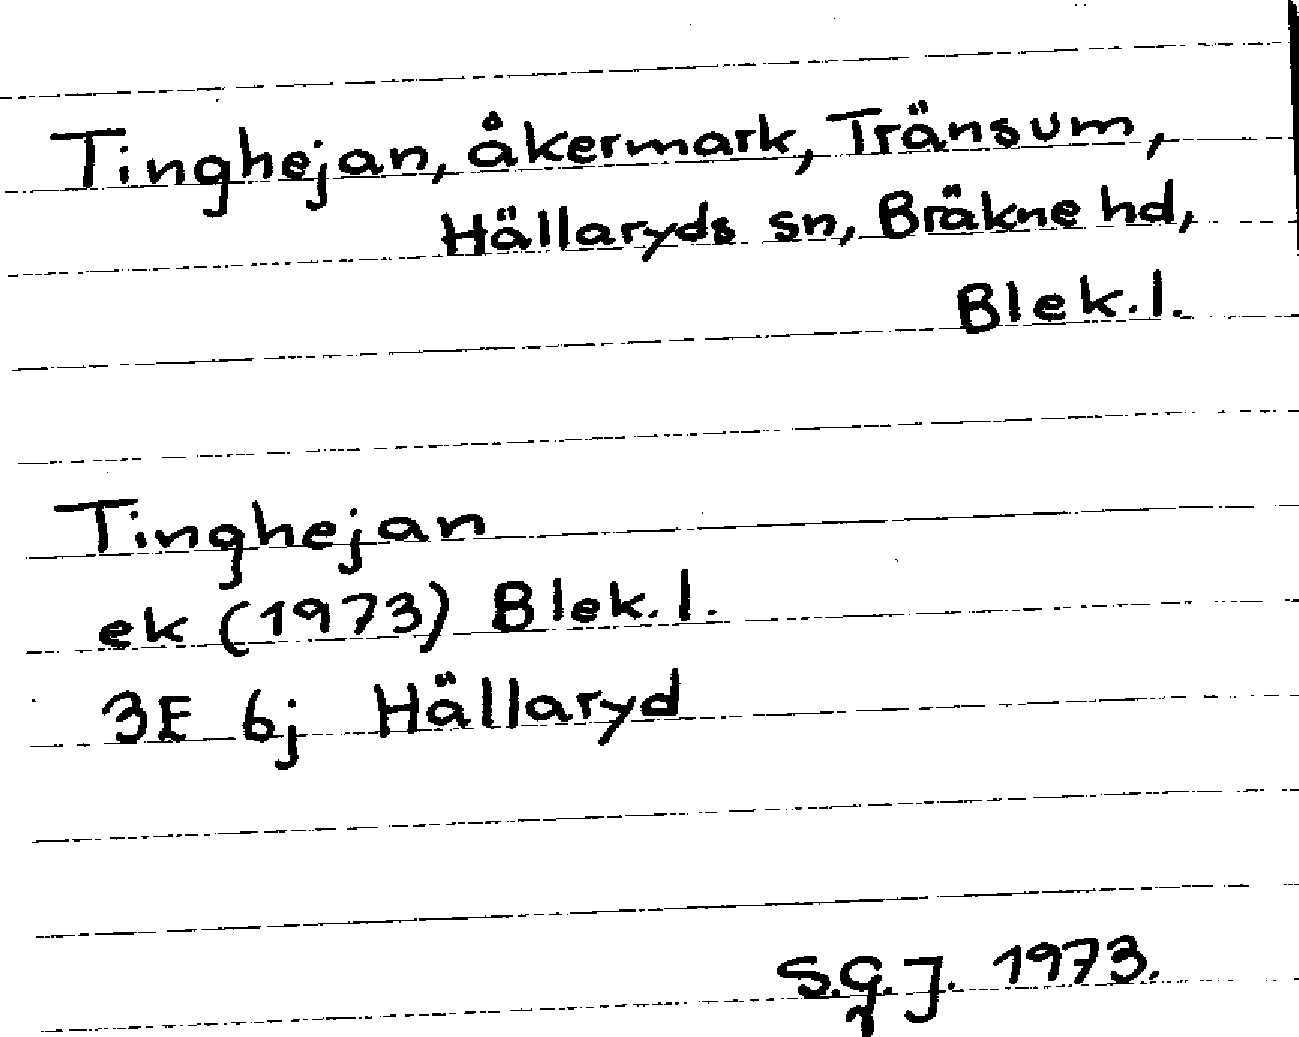 Tinghejan, åkermark, Tränsum,
Hällaryds sn, Bräkne hd,
Blek.l.
Tinghejan
ek (1973) Blek.l.
3E 6j Hällaryd
S.G.J. 1973.